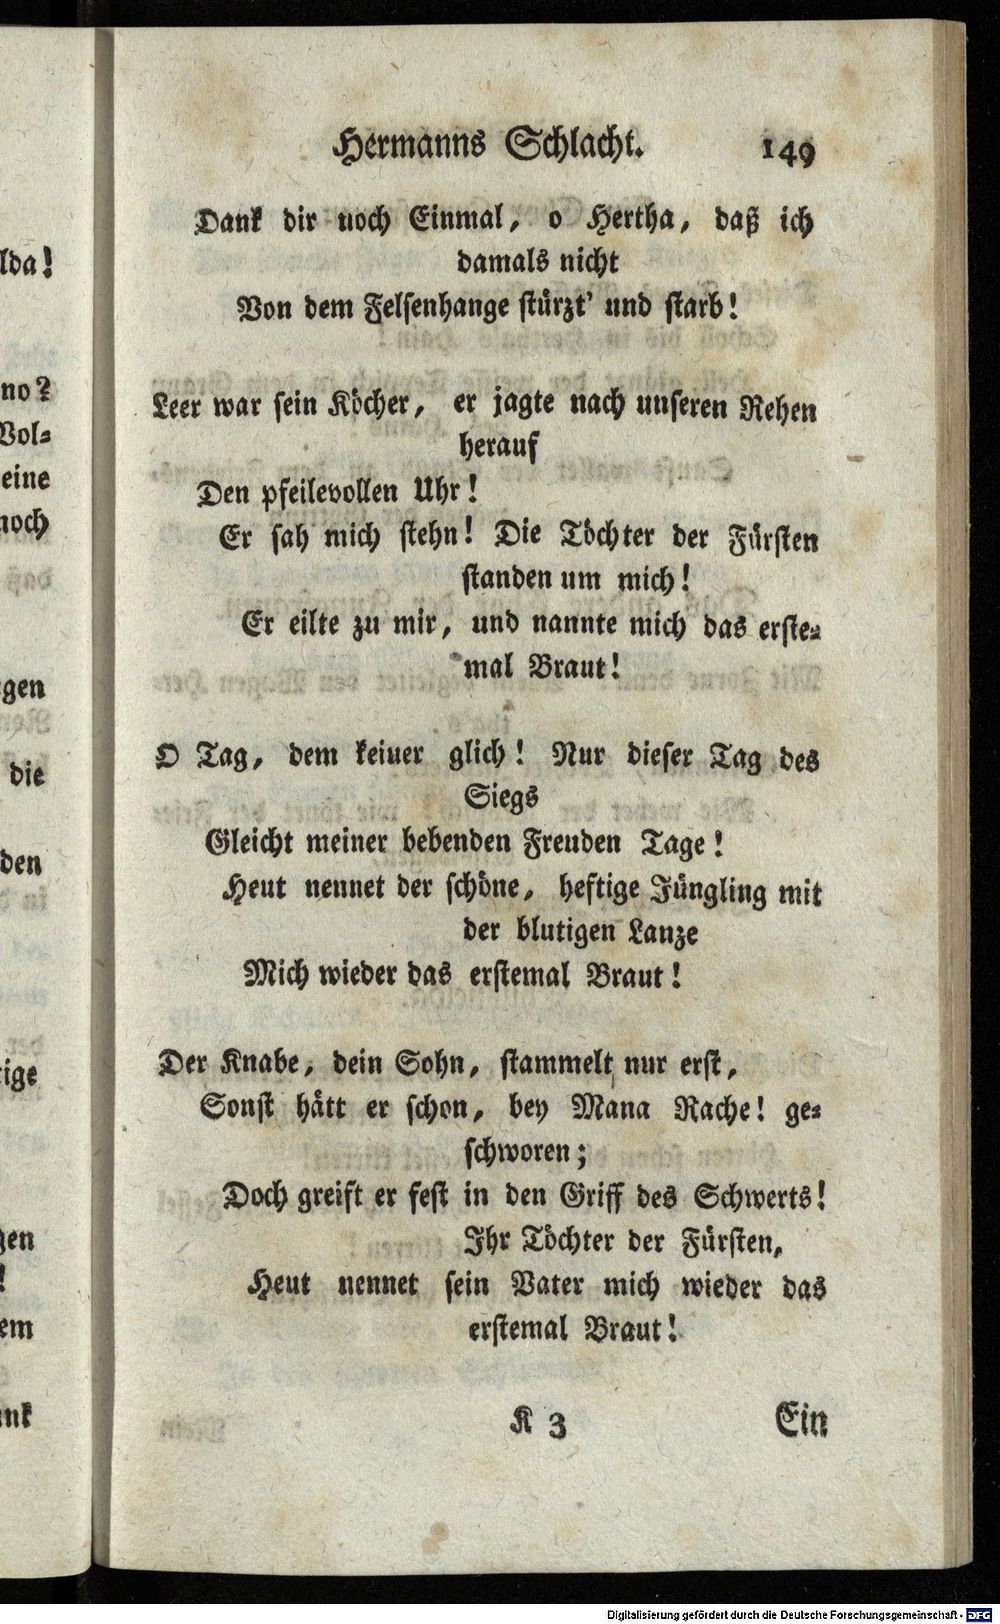 lda!
no?
Vol⸗
eine
noch
gen
die
den
tige
gen
!
em
ank
Hermanns Schlacht. 149
Dank dir noch Einmal, o Hertha, daß ich
damals nicht
Von dem Felsenhange stürzt' und starb!
Leer war sein Köcher, er jagte nach unseren Rehen
herauf
Den pfeilevollen Uhr!
Er sah mich stehn! Die Töchter der Fürsten
standen um mich!
Er eilte zu mir, und nannte mich das erste⸗
mal Braut!
O Tag, dem keiuer glich! Nur dieser Tag des
Siegs
Gleicht meiner bebenden Freuden Tage!
Heut nennet der schöne, heftige Jüngling mit
der blutigen Lanze
Mich wieder das erstemal Braut!
Der Knabe, dein Sohn, stammelt nur erst,
Sonst hätt er schon, bey Mana Rache! ge⸗
schworen;
Doch greift er fest in den Griff des Schwerts!
Ihr Töchter der Fürsten,
Heut nennet sein Vater mich wieder das
erstemal Braut!
K 3 Ein
Digitalisierung gefördert durch die Deutsche Forschungsgemeinschaft - DFG